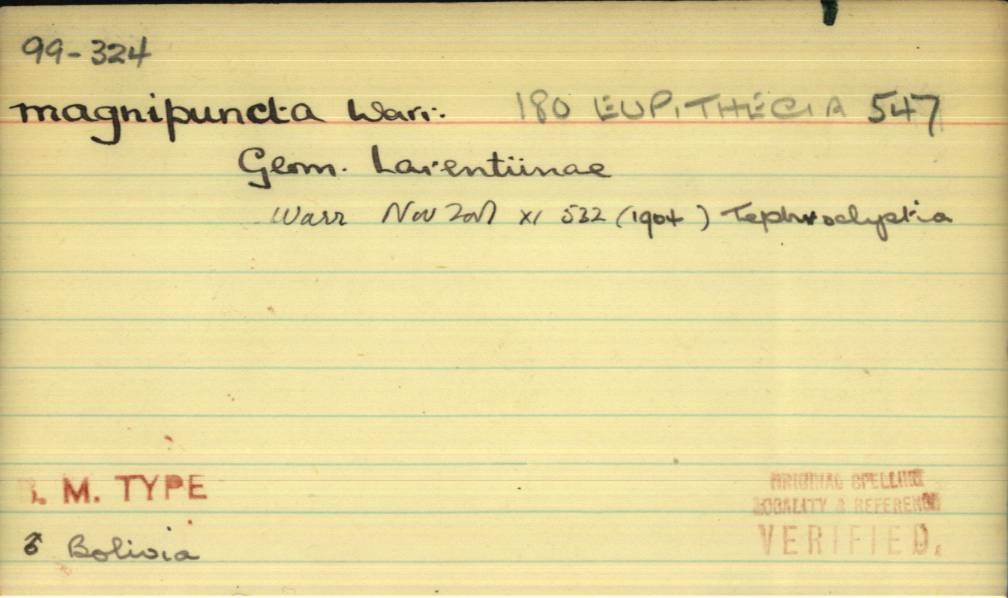 99-324
magnipuncta Warr. 180 EUPITHECIA 547
Geom. Larentiinae
Warr Nov Zool XI 532 (1904) Tephroclystia
B. M. TYPE
♂ Bolivia
ORIGINAL SPELLING
LOCALITY & REFERENCE
VERIFIED.